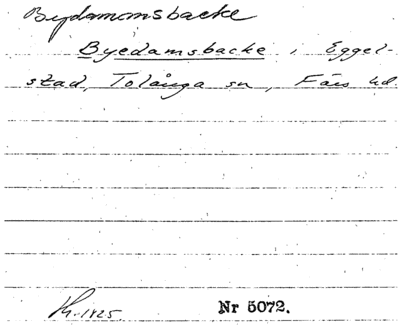 Bydamomsbacke
Byedamsbacke i Eggel-
stad, Tolånga sn, Färs hd.
Nr 5072.